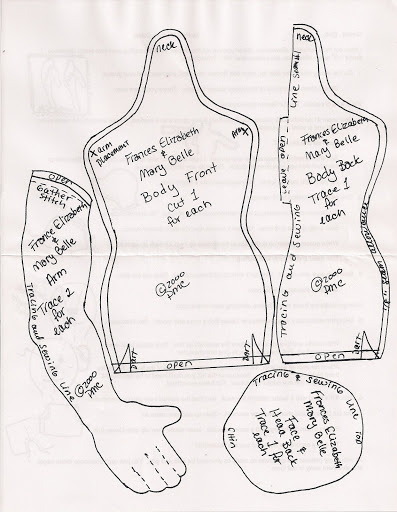 neck
X arm
placement
Arm X
Frances Elizabeth
&
Mary Belle
Body Front
cut 1
for each
©2000
DART
DART
open
neck
seam line
Leave open
Tracing and sewing
Frances Elizabeth
&
May Belle
Body Back
Trace 1
for
each
©2000
DART
open
open
Gather
stitch
France Elizabeth
&
Mary Belle
Arm
Trace 2
for
each
Tracing and sewing Line
©2000
Tracing & sewing Line Top
Frances Elizabeth
Mary Belle
Face &
Head Back
Trace 1 for
each
chin